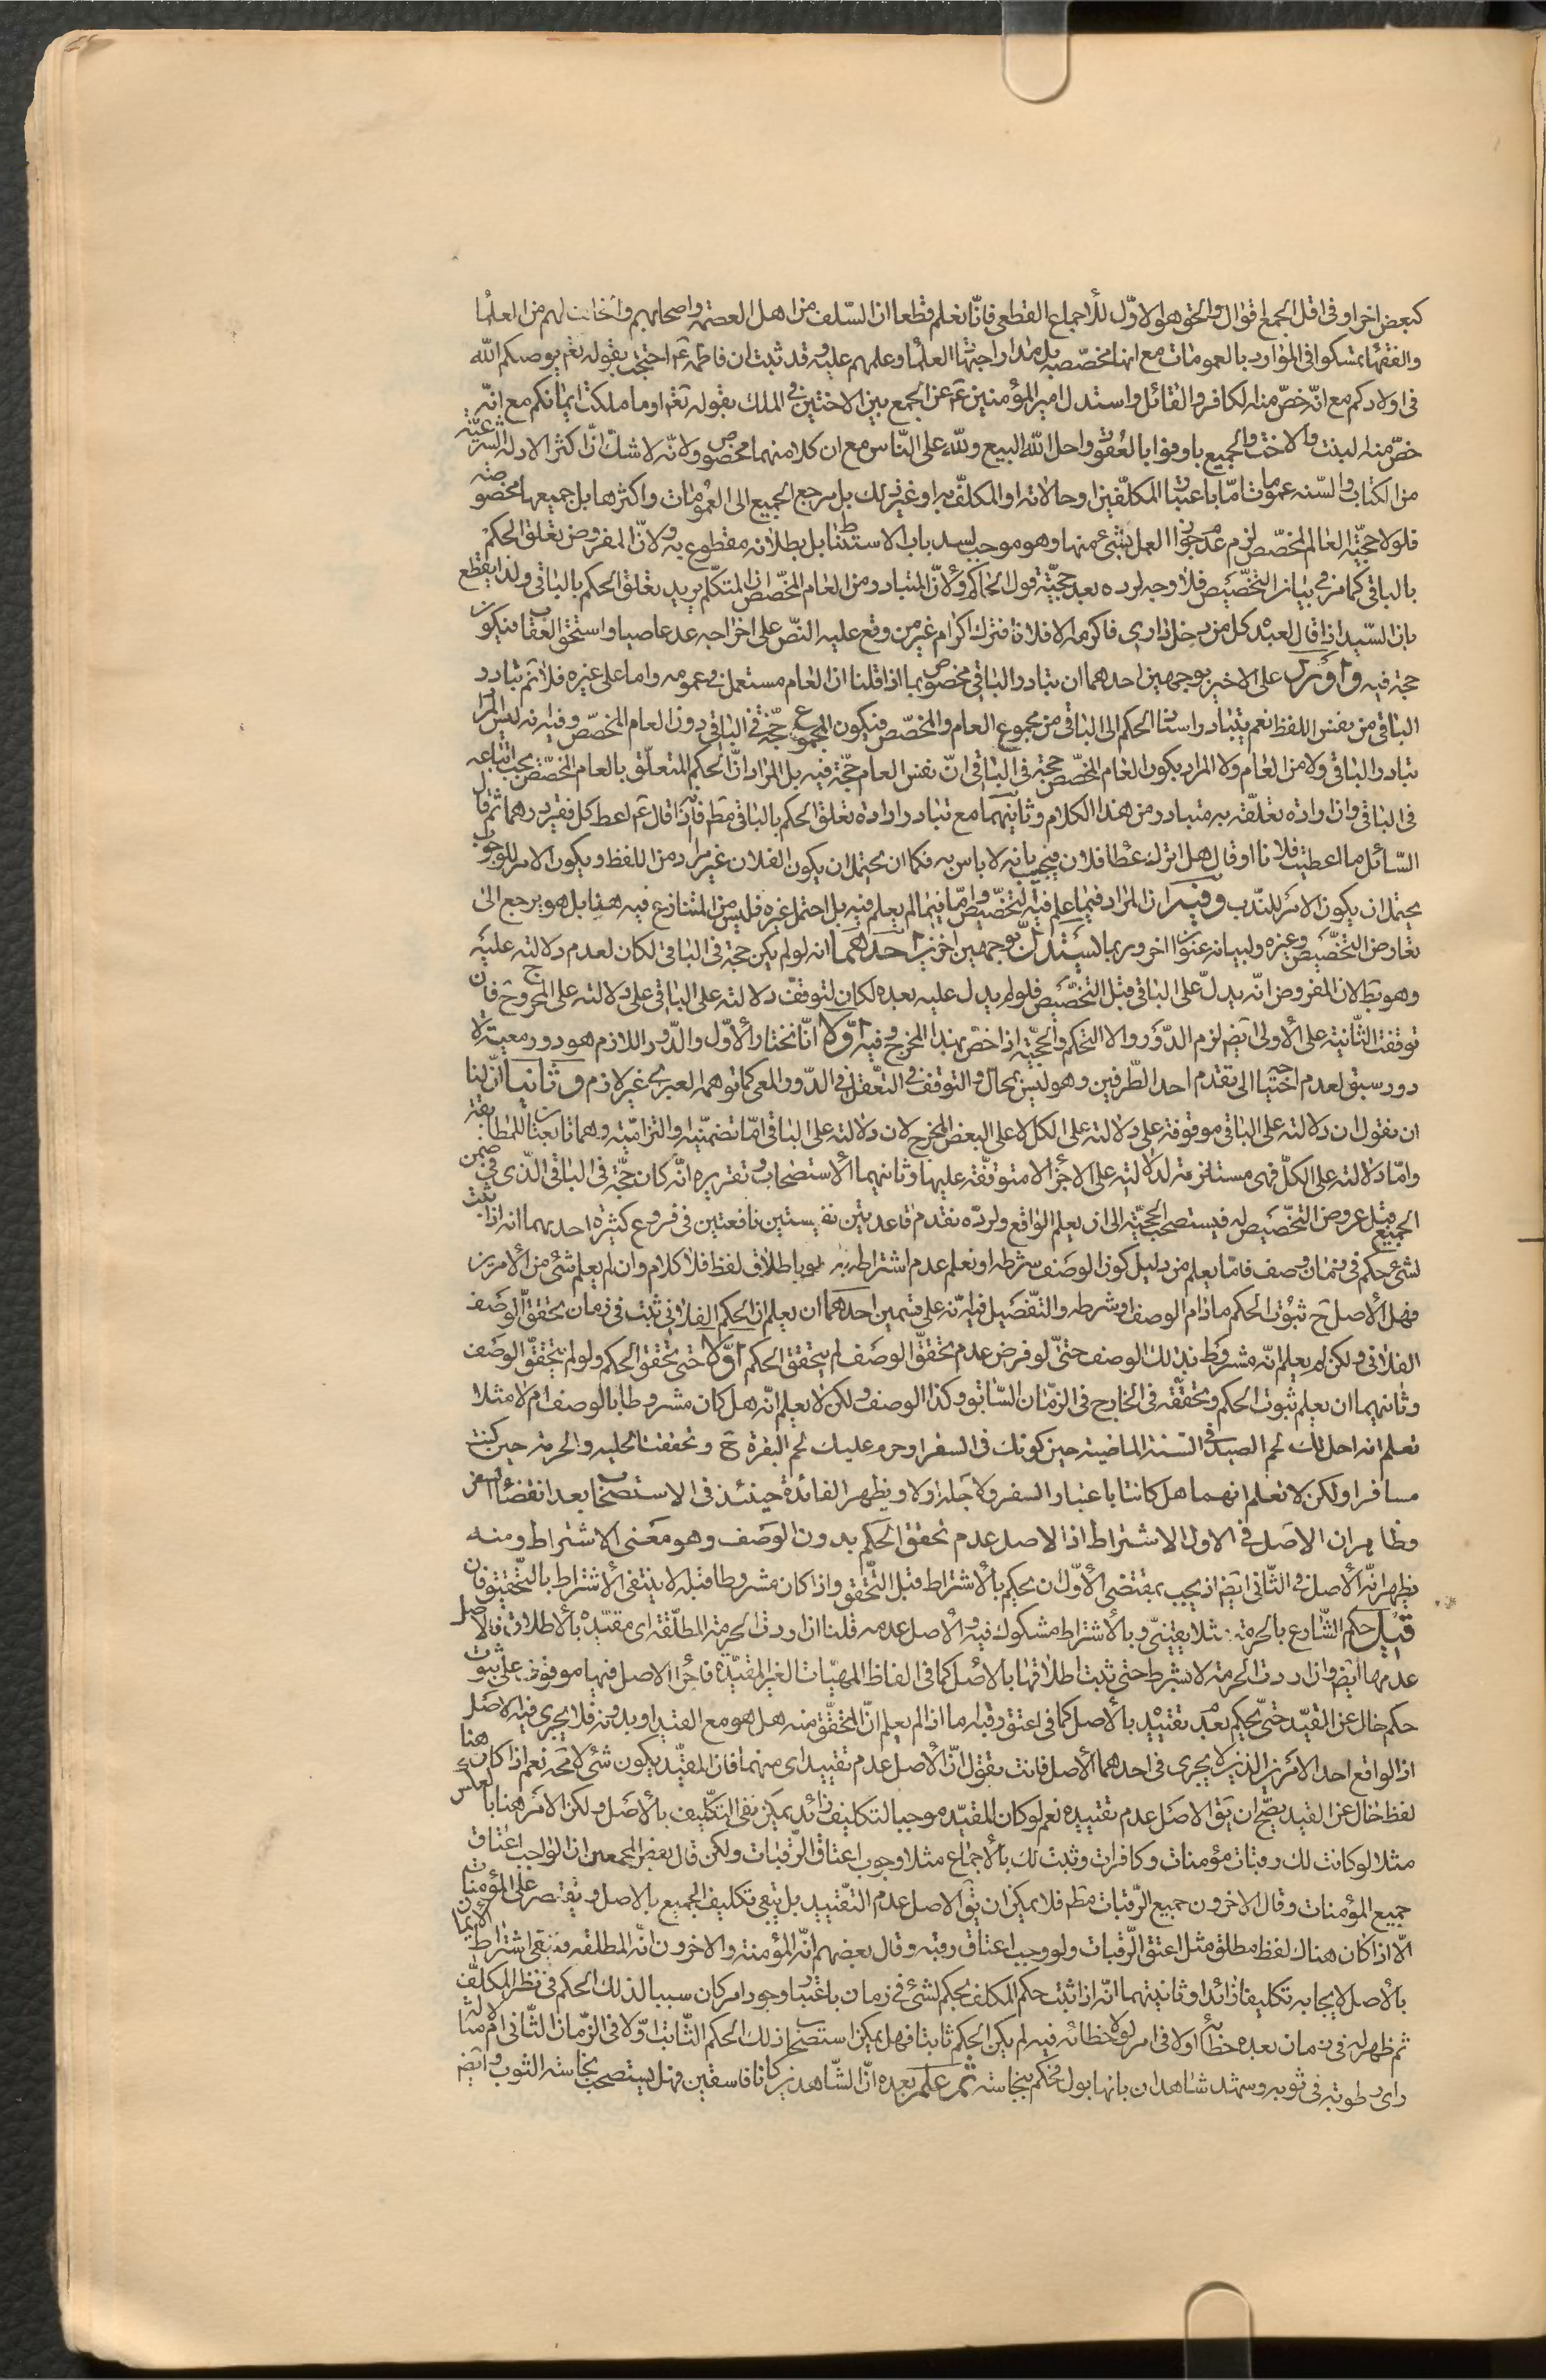 كبعض اخر او فى اقل الجمع اقوال والحق هو الاوّل للأجماع القطعى فانّا نعلم قطعا ان السّلف من اهل العصمة واصحابهم و لهم من العلماء
والفقهاء تمسكوا فى الموارد بالعمومات مع انها مخصّصه بل مدار اجتهاد العلماء وعلمهم عليه وقد ثبت ان فاطمة ع احتجت بقوله تعم يوصيكم الله
فى اولادكم مع انّه خصّ منه الكافر والقاتل واستدل امير المؤمنين ع عن الجمع بين الاختين فى الملك بقوله تعم او ما ملكت ايمانكم مع انّه
خصّ منه البنت والاخت والجميع باوفوا بالعقود واحل الله البيع ولله على النّاس مع ان كلا منهما مخصوص ولانّه لا شك انّ اكثر الادله الشرعيّة
من الكتاب والسّنه عمومات امّا باعتبار المكلّفين او حالاته او المكلّف به او غير ذلك بل مرجع الجميع الى العمومات واكثرها بل جميعها مخصوصه
فلولا حجيّة العالم المخصّص لزم عدم جواز العمل بشئ منها وهو موجب لسد باب الاستنباط بل بطلانه مقطوع به ولانّ المفروض تعلق الحكم
بالباقى كما مر فى بيان التخصّيص فلا وجه لرده بعد حجيّة قول الحاكم ولأنّ المتبادر من العام المخصّص ان المتكلّم يريد تعلق الحكم بالباقى ولذا يقطع
بان السّيد اذا قال لعبده كل من دخل دارى فاكرمه الا فلانا فترك اكرام غير من وقع عليه النصّ على اخراجه عد عاصيا واستحق العقاب فيكون
حجة فيه واورد على الاخير بوجهين احدهما ان تبادر الباقى مخصوص بما اذا قلنا ان العام مستعمل فى عمومه واما على غيره فلا نم تبادر
الباقى من نفس اللفظ نعم يتبادر اسناد الحكم الى الباقى من مجموع العام والمخصّص فيكون المجموع حجّة فى الباقى دون العام المخصّص وفيه انه ليس المراد
تبادر الباقى ولا من العام ولا المراد بكون العام المخصّص حجة فى الباقى انّ نفس العام حجّة فيه بل المراد انّ الحكم المتعلّق بالعام المخصّص يجب اتباعه
فى الباقى وان اراده تعلقه به متبادر من هذا الكلام وثانيهما مع تبادر ارادة تعلق الحكم بالباقى مط فانّه اذا قال ع اعط كل فقير درهما ثم قال
السّائل ما اعطيت فلانا او قال هل اترك عطا فلان فيجيب بانه لا باس به فكما ان يحتمل ان يكون الفلان غير مراد من اللفظ ويكون الامر للوجوب
يحتمل ان يكون الامر للندب وفيه ان المراد فيما علم فيه التخصّيص وامّا فيما لم يعلم فيه بل احتمل غيره فليس من المتنازع فيه هنا بل هو يرجع الى
تعارض التخصّيص وغيره ولبيانه عنوان اخر وربما يستدل بوجهين اخرين احدهما انه لو لم يكن حجة فى الباقى لكان لعدم دلالته عليه
وهو بط لان المفروض انّه يدلّ على الباقى قبل التخصّيص فلو لم يدل عليه بعده لكان لتوقف دلالته على الباقى على دلالته على المخرج فان
توقفت الثّانية على الأولى ايض لزم الدّور والا التحكم والحجيّة اذا خصّ بهذا المخرج وفيه اوّلا انّا نختار الأوّل والدّور اللازم هو دور معية لا
دور سبق لعدم احتياجه الى تقدم احد الطّرفين وهو ليس بمحال والتوقف فى التعّقل فى الدّور المعى كما توهمه العبرى غير لازم وثانيا انّ لنا
ان نقول ان دلالته على الباقى موقوفة على دلالته على الكل لا على البعض المخرج لان دلالته على الباقى امّا تضمنّيته والتزاميّة وهما تابعتان للمطابقة
وامّا دلالته على الكلّ فهى مستلزمة لدلالته على الاجزاء لا متوقّفة عليها وثانيهما الأستصحاب وتقريره انّه كان حجّة فى الباقى الّذى فى ضمن
الجميع قبل عروض التخّصيص له فيستصحب الحجيّة الى ان يعلم الواقع ولردّه نقدم قاعدتين نفيستين نافعتين فى فروع كثيره احديهما انه اذا ثبت
لشئ حكم فى زمان وصف فامّا يعلم من دليل كون الوصف شرطه او نعلم عدم اشتراطه به لو باطلاق لفظ فلا كلام وان لم يعلم شئ من الأمرين
فهل الأصل ح ثبوت الحكم مادام الوصف او شرطه والتّفصيل فيه انّه على قسمين احدهما ان يعلم ان الحكم الفلانى ثبت فى زمان تحقق الوصف
الفلانى ولكن لم يعلم انّه مشروط بذلك الوصف حتىّ لو فرض عدم تحققّ الوصف لم يتحقق الحكم اوّلا حتى تحقق الحكم ولو لم يتحققّ الوصف
وثانيهما ان يعلم ثبوت الحكم وتحقّقه فى الخارج فى الزّمان السّابق وكذا الوصف ولكن لا يعلم انّه هل كان مشروطا بالوصف ام لا مثلا
تعلم انه احل لك لحم الصيد فى السّنة الماضية حين كونك فى السفر او حرم عليك لحم البقرة ح وتحققت الحلية والحرمة حين كنت
مسافرا ولكن لا تعلم انهما هل كانتا باعتبار السفر ولاجله اولا ويظهر الفائدة حينئذ فى الاستصحاب بعد انقضاء السفر
وظاهر ان الاصل فى الاول الاشتراط اذ الاصل عدم تحقق الحكم بدون الوصف وهو معنى الاشتراط ومنه
يظهر انّ الأصل فى الثّانى ايض اذ يجب بمقتضى الأوّل ان يحكم بالأشتراط قبل التّحقق واذا كان مشروطا قبله لا ينتفى الأشتراط بالتّحقيق فان
قيل حكم الشّارع بالحرمة مثلا يقينىّ وبالأشتراط مشكوك فيه والأصل عدمه قلنا ان اردت الحرمة المطلّقة اى مقيّده بالأطلاق فالاصل
عدمها ايض وان اردت الحرمة لا بشرط حتى ثبت اطلاقها بالأصل كما فى الفاظ المهيّات الغير المقيّدة فاجراء الاصل فيها موقوف على ثبوت
حكم خال عن القيد حتىّ يحكم بعدم تقييّد بالأصل كما فى اعتق رقبة اما اذا لم يعلم انّ المتحقّق منه هل هو مع القيد او بدونه فلا يجرى فيه الاصل
اذ الواقع احد الامرين الذين لا يجرى فى احدهما الأصل فانت تقول انّ الأصل عدم تقييد اى منهما فان المقيّد يكون شئ لا محه نعم اذا كان هناك
لفظ خال عن القيد يصّح ان يق الاصل عدم تقييده نعم لو كان المقيّد موجبا لتكليف زائد يمكن نفى التكليف بالأصل ولكن الامر هنا بالعكس
مثلا لو كانت لك رقبات مؤمنات وكافرات وثبت لك بالأجماع مثلا وجوب اعتاق الرّقبات ولكن قال بعض المجمعين ان الواجب اعتاق
جميع المؤمنات وقال الاخرون جميع الرّقبات مط فلا يمكن ان يق الاصل عدم التقّييد بل ينفى تكليف الجميع بالاصل ويقتصر على المؤمنات
الّا اذا كان هناك لفظ مطلق مثل اعتق الرّقبات ولو وجب اعتاق رقبة وقال بعضهم انّه المؤمنة والاخرون انّه المطلقة فينفى اشتراط الأيمان
بالأصل لايجابه تكليفا زائدا وثانيتهما انّه اذا ثبت حكم المكلف بحكم لشئ فى زمان باعتبار وجود امر كان سببا لذلك الحكم فى نظر المكلّف
ثم ظهر له فى زمان بعده خطائه اولا فى امر لولا خطائه فيه لم يكن الحكم ثابتا فهل يمكن استصحاب ذلك الحكم الثّابت اوّلا فى الزّمان الثّانى ام لا مثلا
راى رطوبة فى ثوبه وشهد شاهدان بانها بول فحكم بنجاسته ثم علم بعده انّ الشّاهدين كانا فاسقين فهل يستصحب نجاسة الثوب وايض